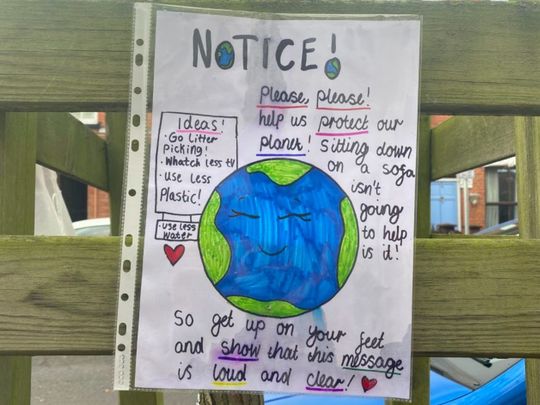 NOTICE!
Please, please!
help us protect our
planet! sitting down
on a sofa
isn't
going
to help
is it!
Ideas!
· Go litter
Picking!
· Whatch less tv
· Use less
Plastic!
· use less
water
So get up on your feet
and show that this message
is loud and clear!